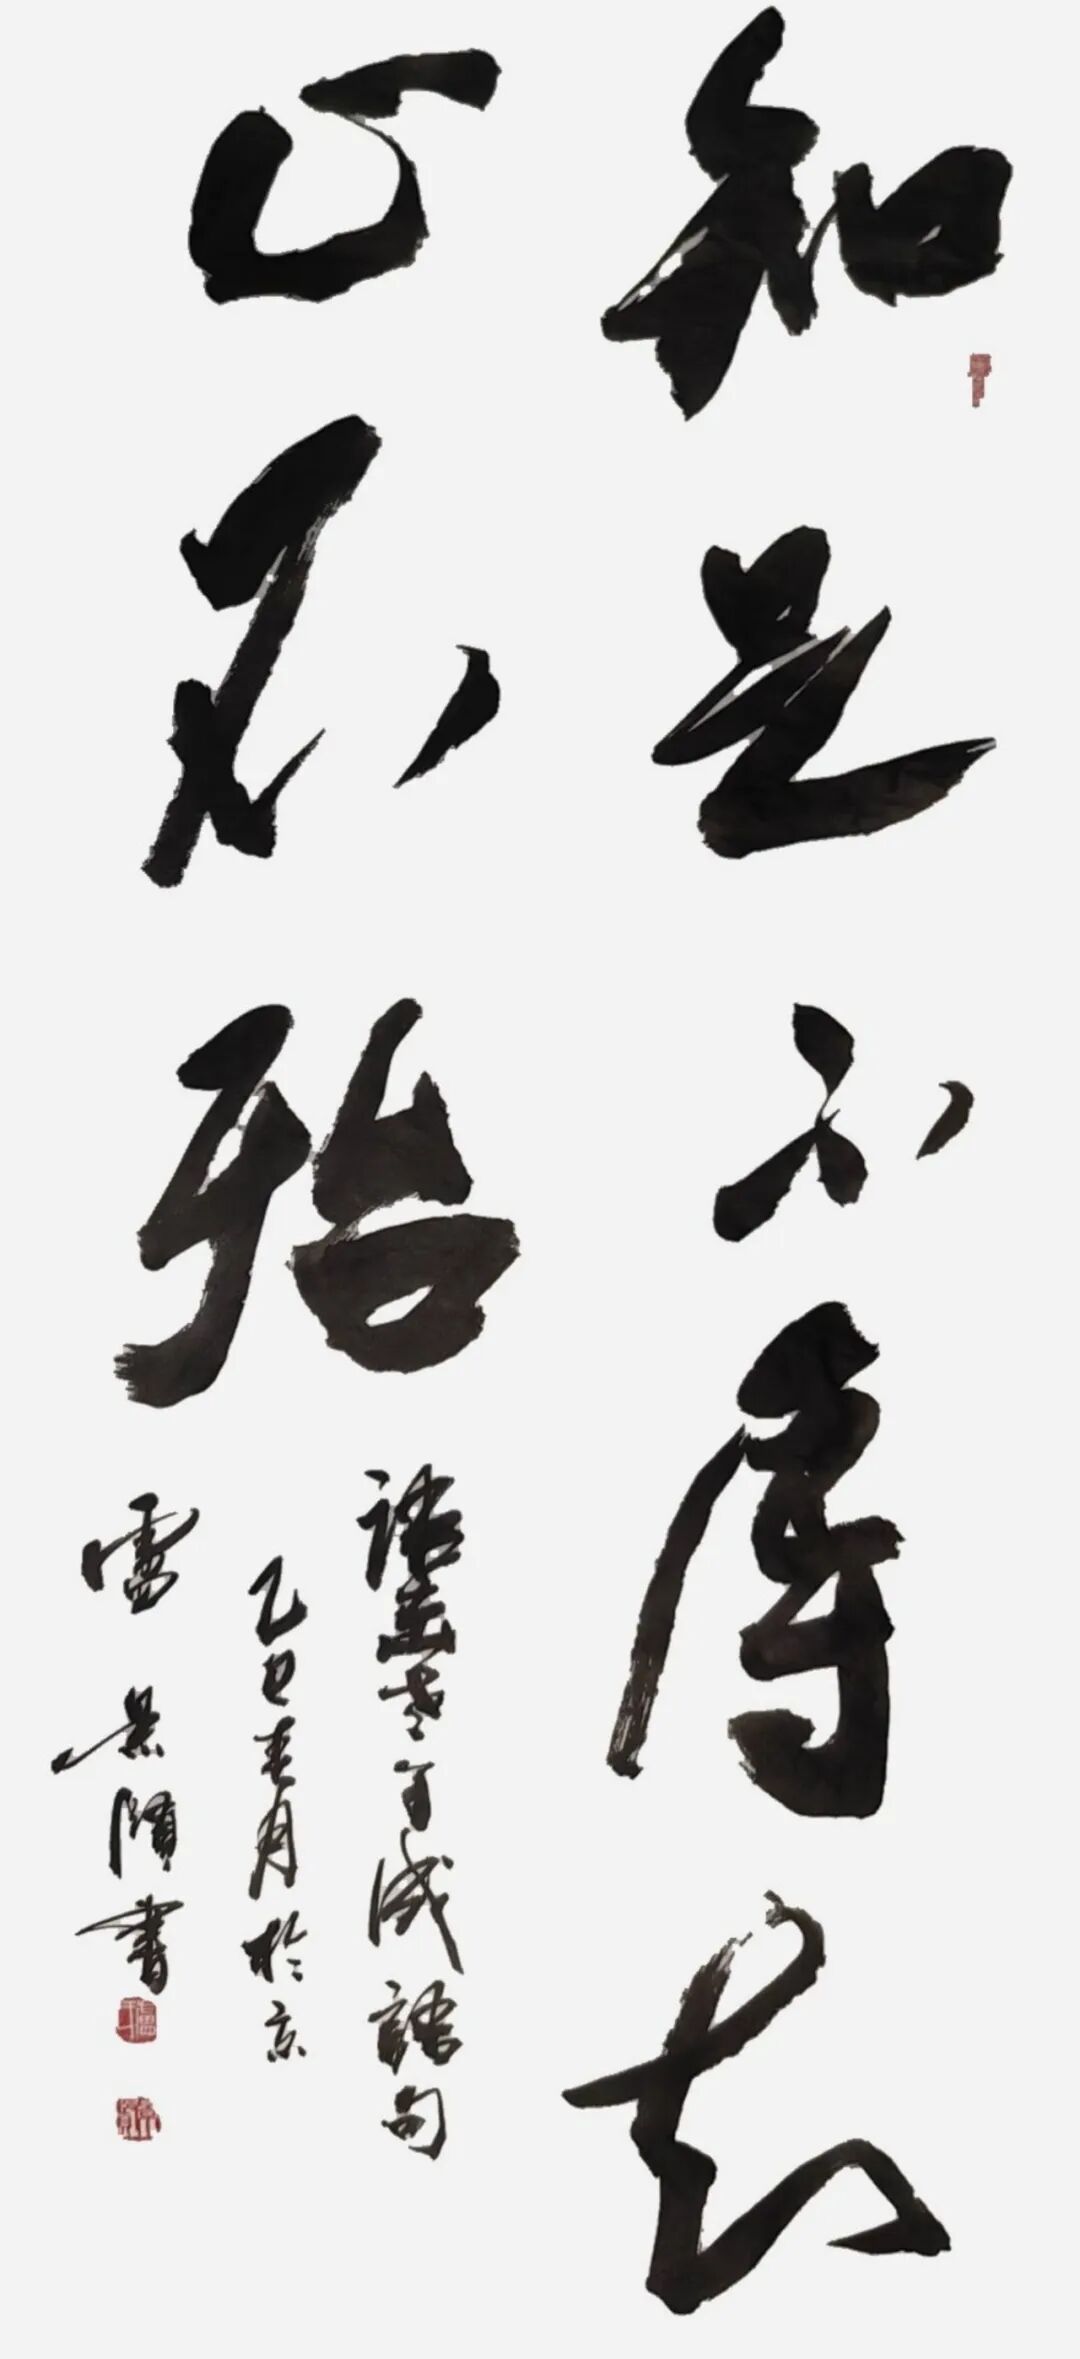 知足不辱知
止不殆
語出老子成語句
乙巳春月於京
景 書